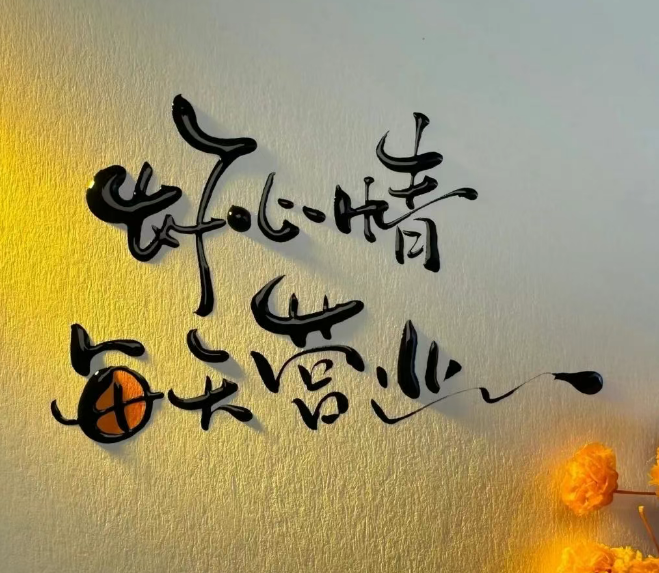 好心情
每天营业